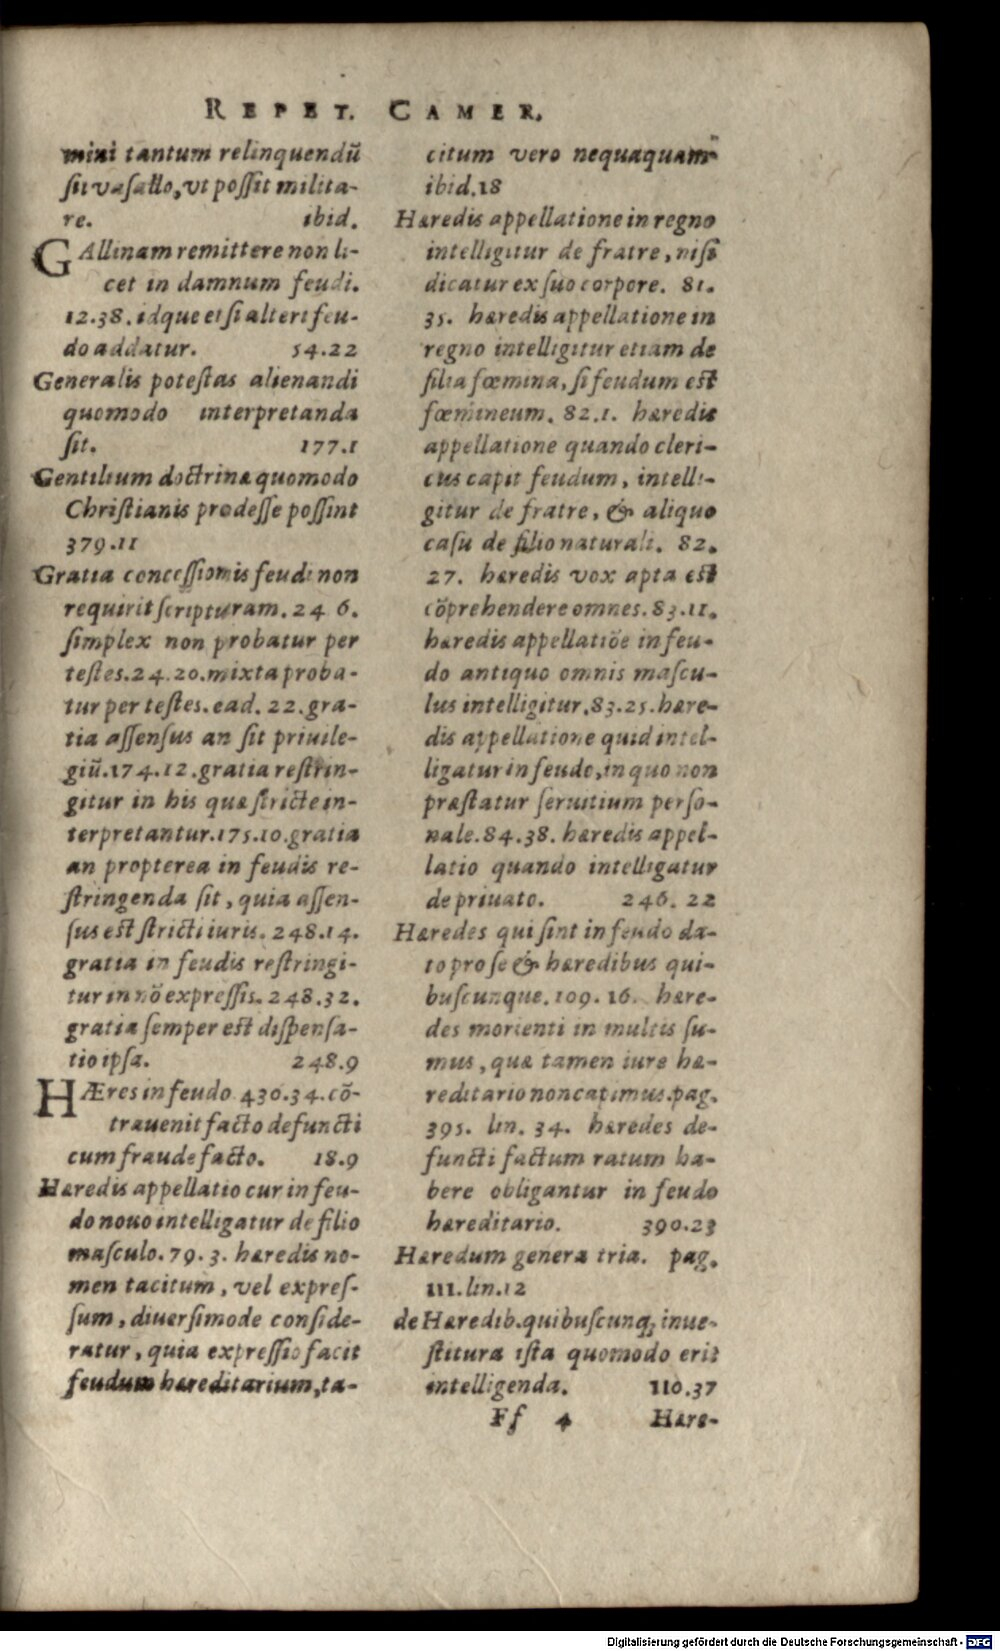 REPET. CAMER.
mini tantum relinquendū
sit vasallo, vt possit milita-
re. ibid.
GAllinam remittere non li-
cet in damnum feudi.
12.38. idque et si alteri feu-
do addatur. 54.22
Generalis potestas alienandi
quomodo interpretanda
sit. 177.1
Gentilium doctrinæ quomodo
Christianis prodesse possint
379.11
Gratia concessionis feudi non
requirit scripturam. 24 6.
simplex non probatur per
testes. 24.20. mixta proba-
tur per testes. ead. 22. gra-
tia assensus an sit priuile-
giū. 174.12. gratia restrin-
gitur in his quæ stricte in-
terpretantur. 175.10. gratia
an propterea in feudis re-
stringenda sit, quia assen-
sus est stricti iuris. 248.14.
gratia in feudis restringi-
tur in nō expressis. 248.32.
gratia semper est dispensa-
tio ipsa. 248.9
HÆres in feudo 430.34. cō-
trauenit facto defuncti
cum fraude facto. 18.9
Hæredis appellatio cur in feu-
do nouo intelligatur de filio
masculo. 79. 3. hæredis no-
men tacitum, vel expres-
sum, diuersimode conside-
ratur, quia expressio facit
feudum hæreditarium, ta-
citum vero nequaquam
ibid. 18
Hæredis appellatione in regno
intelligitur de fratre, nisi
dicatur ex suo corpore. 81.
35. hæredis appellatione in
regno intelligitur etiam de
filia fœmina, si feudum est
fœmineum. 82.1. hæredis
appellatione quando cleri-
cus capit feudum, intelli-
gitur de fratre, & aliquo
casu de filio naturali. 82.
27. hæredis vox apta est
cōprehendere omnes. 83.11.
hæredis appellatiōe in feu-
do antiquo omnis mascu-
lus intelligitur. 83.25. hære-
dis appellatione quid intel-
ligatur in feudo, in quo non
præstatur seruitium perso-
nale. 84.38. hæredis appel-
latio quando intelligatur
de priuato. 246. 22
Hæredes qui sint in feudo da-
to pro se & hæredibus qui-
buscunque. 109. 16. hære-
des morienti in multis su-
mus, quæ tamen iure hæ-
reditario non capimus. pag.
395. lin. 34. hæredes de-
functi factum ratum ha-
bere obligantur in feudo
hæreditario. 390.23
Hæredum genera tria. pag.
111. lin. 12
de Hæredib. quibuscunq; inue-
stitura ista quomodo erit
intelligenda. 110.37
Ff 4 Hære-
Digitalisierung gefördert durch die Deutsche Forschungsgemeinschaft - DFG